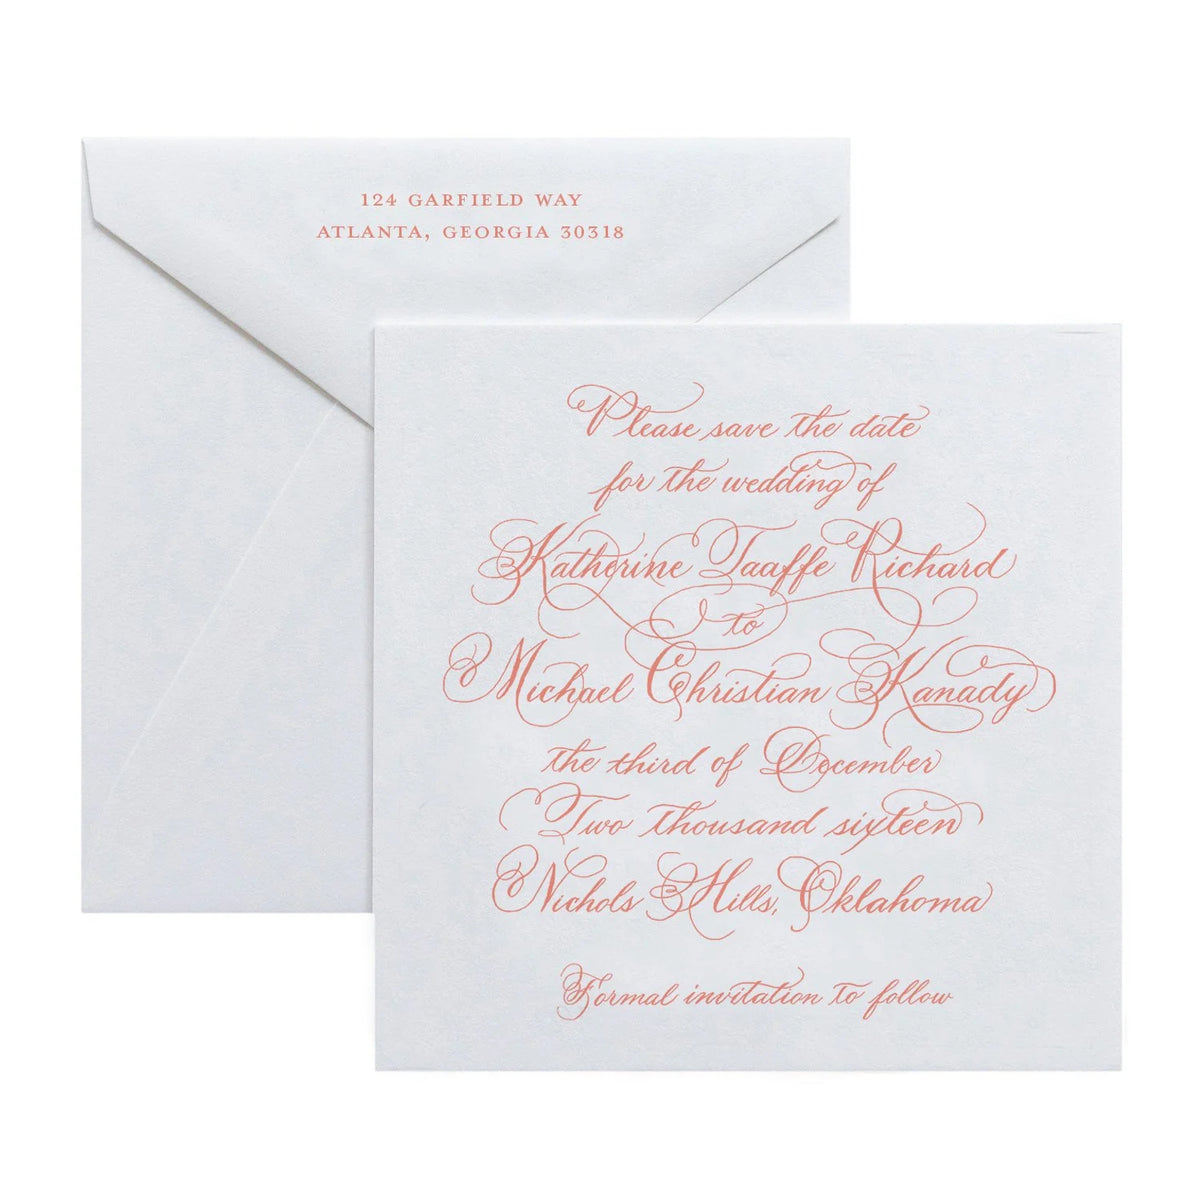 124 GARFIELD WAY
ATLANTA, GEORGIA 30318
Please save the date
for the wedding of
Katherine Taaffe Richard
to
Michael Christian Kanady
the third of December
Two thousand sixteen
Nichols Hills, Oklahoma
Formal invitation to follow